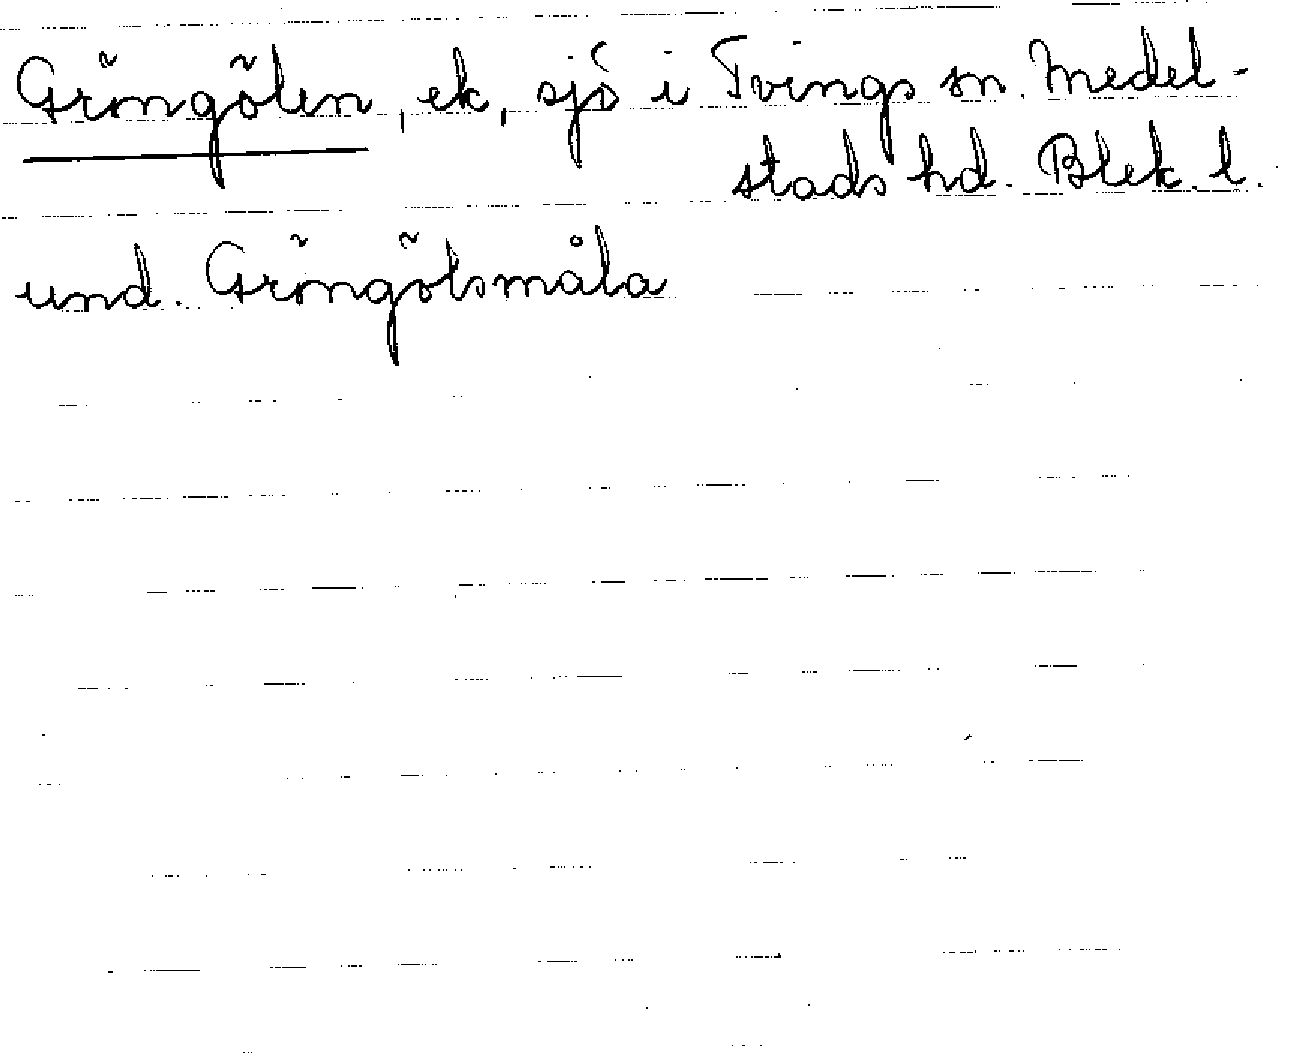 Gröngölen, ek, sjö i Tvings sn. Medel-
stads hd. Blek. l.
und. Gröngölsmåla